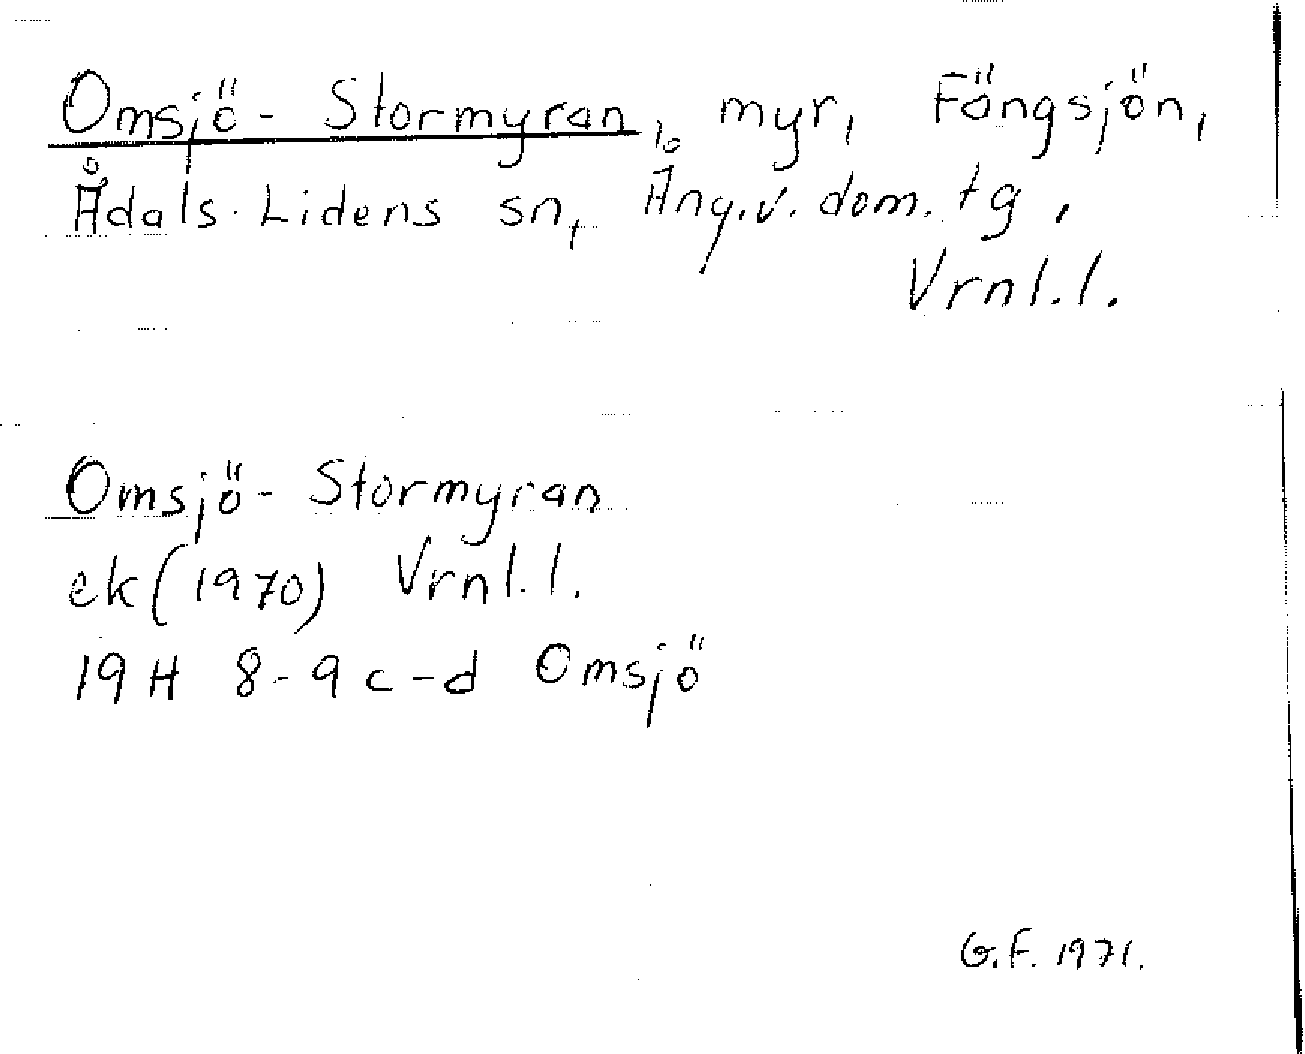 Omsjö-Stormyran, myr, Fängsjön,
Ådals-Lidens sn, Ång.v. dom. tg,
Vrnl.l.
Omsjö-Stormyran
ek (1970) Vrnl.l.
19 H 8-9 c-d Omsjö
G.F. 1971.